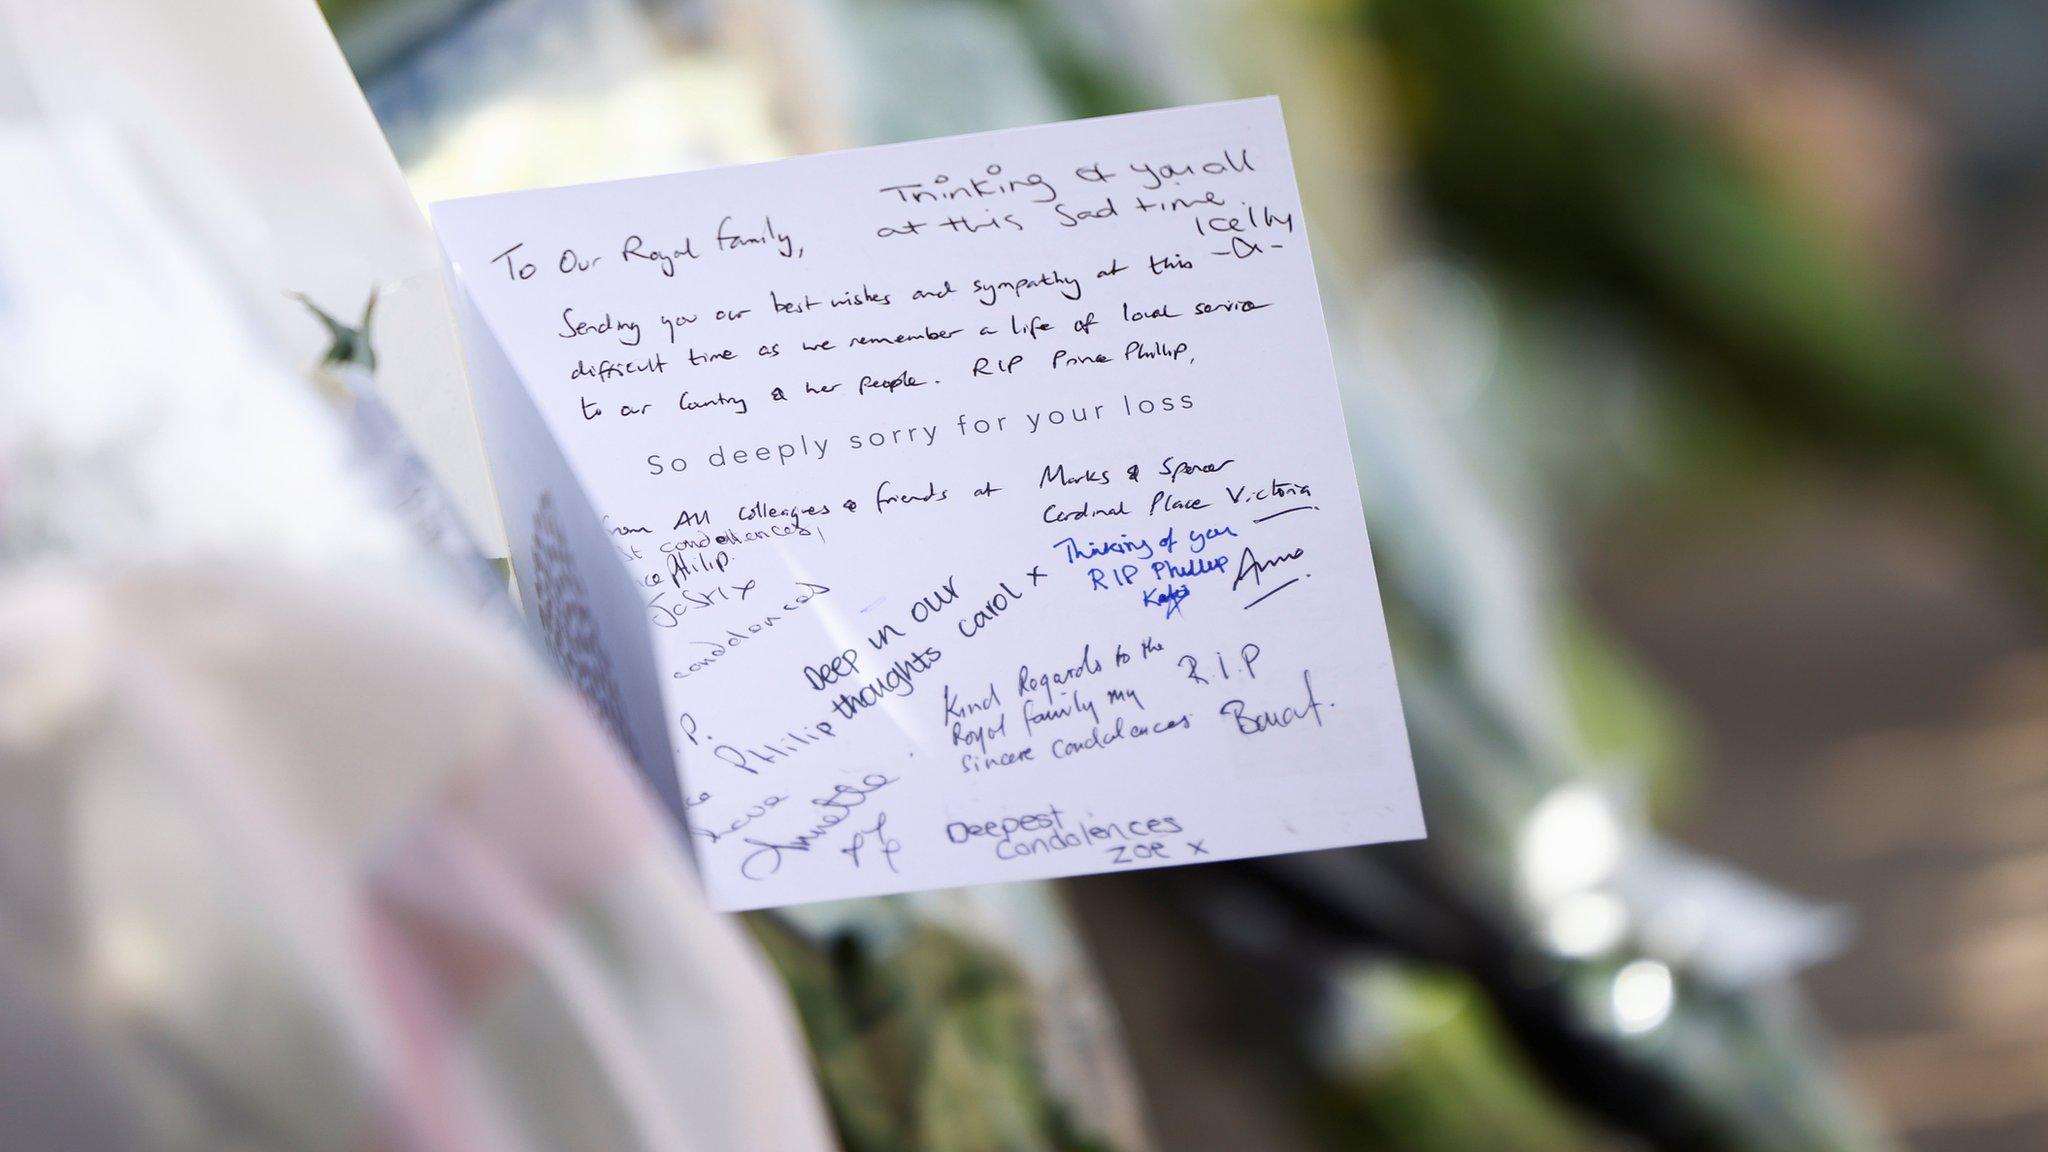 Thinking of you all
at this sad time.
Kelly
To Our Royal Family,
Sending you our best wishes and sympathy at this
difficult time as we remember a life of loyal service
to our Country & her people. RIP Prince Phillip.
So deeply sorry for your loss
from All colleagues & friends at Marks & Spencer
Cardinal Place Victoria
condolences,
Philip.
Thinking of you
RIP Phillip
Anna
condolences
Deep in our
thoughts Carol x
Kind Regards to the
Royal family my
sincere condolences
R.I.P
.P.
Philip
Annette
Deepest
Condolences
Zoe x